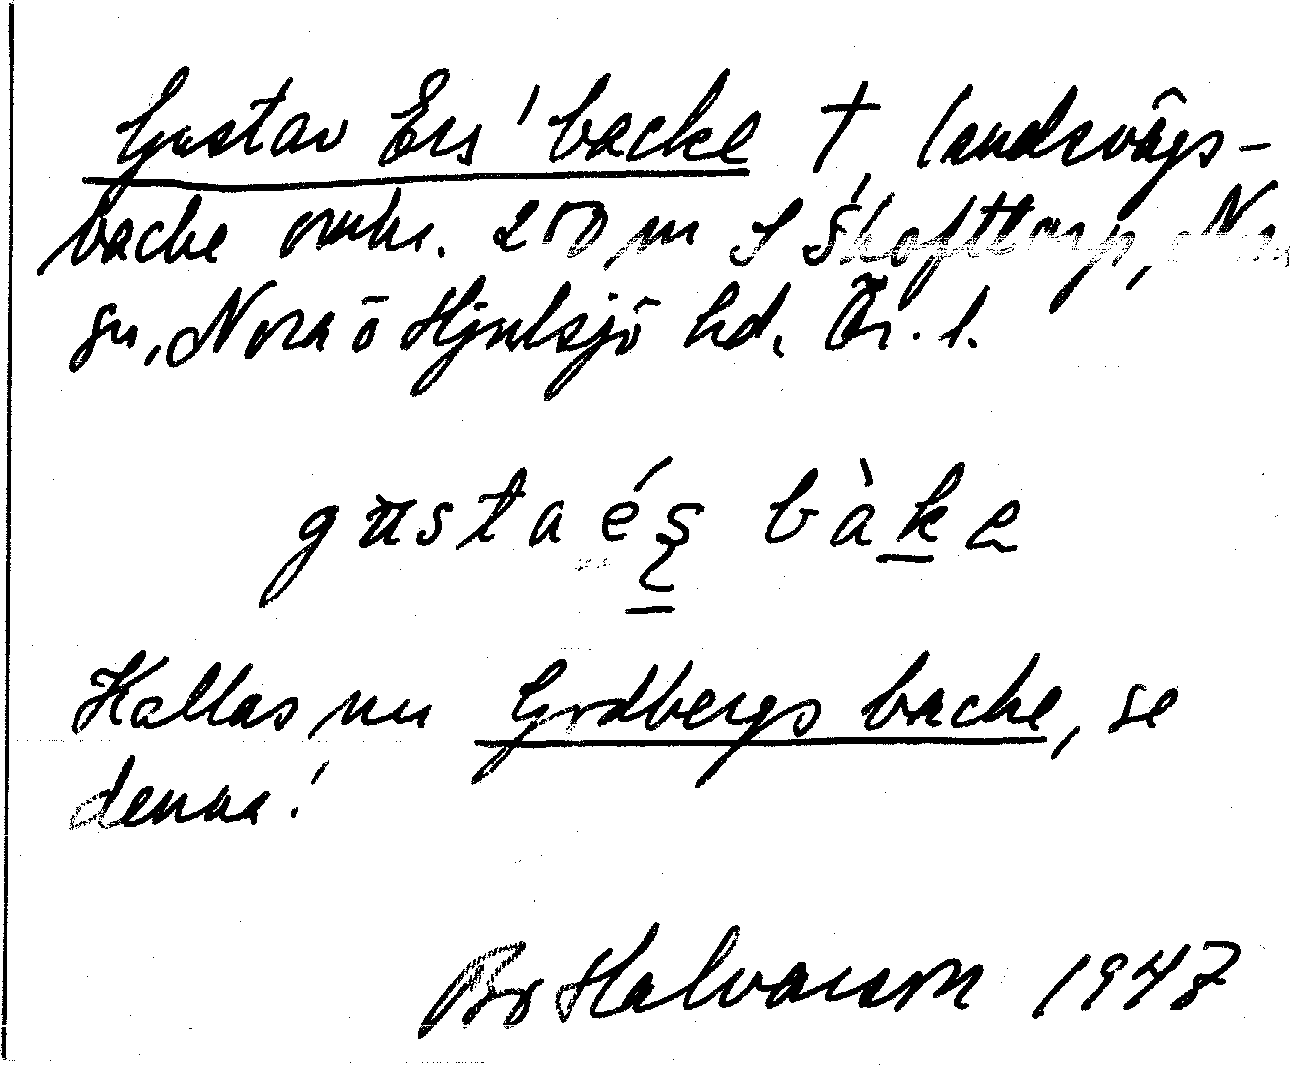 Gustav Ers' backe † landsvägs-
backe omkr. 250 m S Skoftorp, Nora
sn, Nora o Hjulsjö hd, Ör. l.
gustaés bàke
Kallas nu Godbergs backe, se
denna!
Bo Halvarson 1947